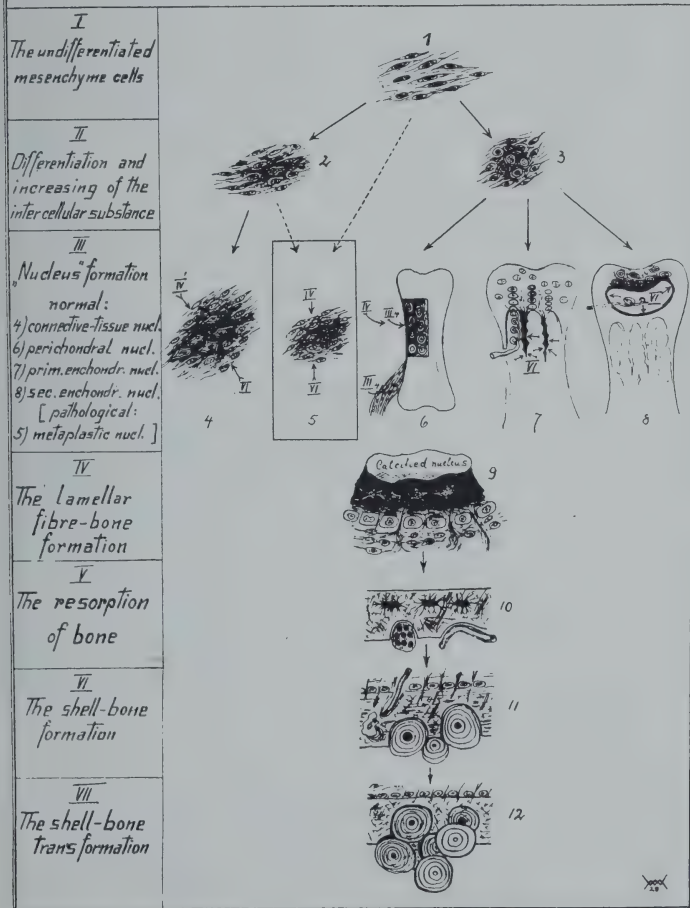 I
The undifferentiated
mesenchyme cells
II
Differentiation and
increasing of the
intercellular substance
III
„Nucleus" formation
normal:
4) connective-tissue nucl.
6) perichondral nucl.
7) prim. enchondr. nucl.
8) sec. enchondr. nucl.
[ pathological:
5) metaplastic nucl. ]
IV
The lamellar
fibre-bone
formation
V
The resorption
of bone
VI
The shell-bone
formation
VII
The shell-bone
transformation
1
2
3
IV
VI
4
IV
VI
5
IV
III
III
6
VI
7
VI
8
Calcified nucleus
9
10
11
12
28